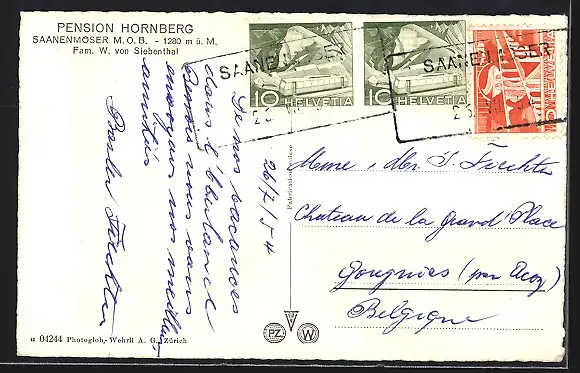 PENSION HORNBERG
SAANENMÖSER M.O.B. - 1280 m ü. M.
Fam. W. von Siebenthal
SAANENMÖSER
10 HELVETIA 10 HELVETIA
SAANENMÖSER
26/7/54
De nos vacances
dans l'Oberland
Bernois nous vous
nos meilleures
amitiés
Fabrication Suisse
Mme, Mr J.
Chateau de la Grand Place
Gougnies (par Acoz)
Belgique
u 04244 Photoglob-Wehrli A. G., Zürich
PZ W